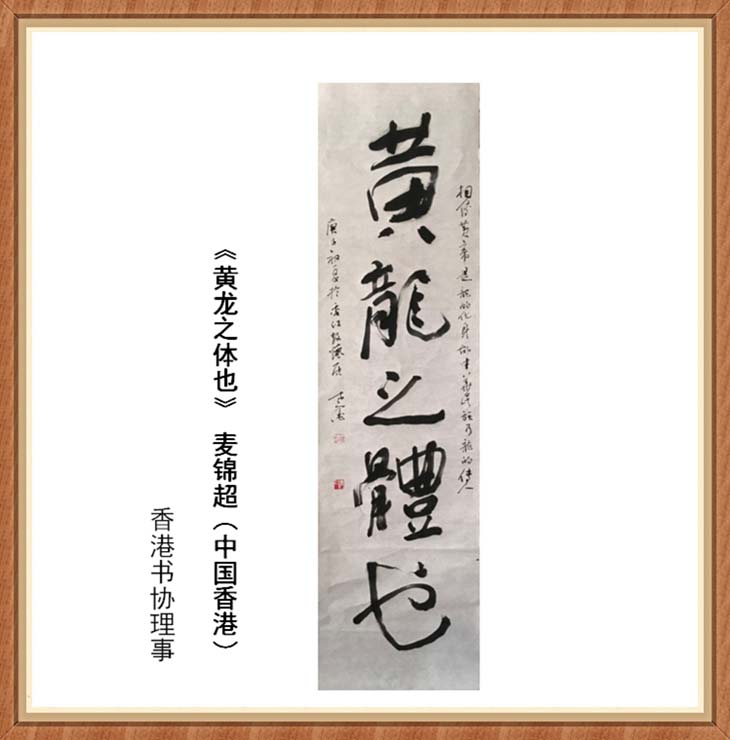 相传黄帝是龙的化身故中华民族乃龙的传人
黄龍之體也
庚子初夏於香江
《黄龙之体也》 麦锦超（中国香港）
香港书协理事